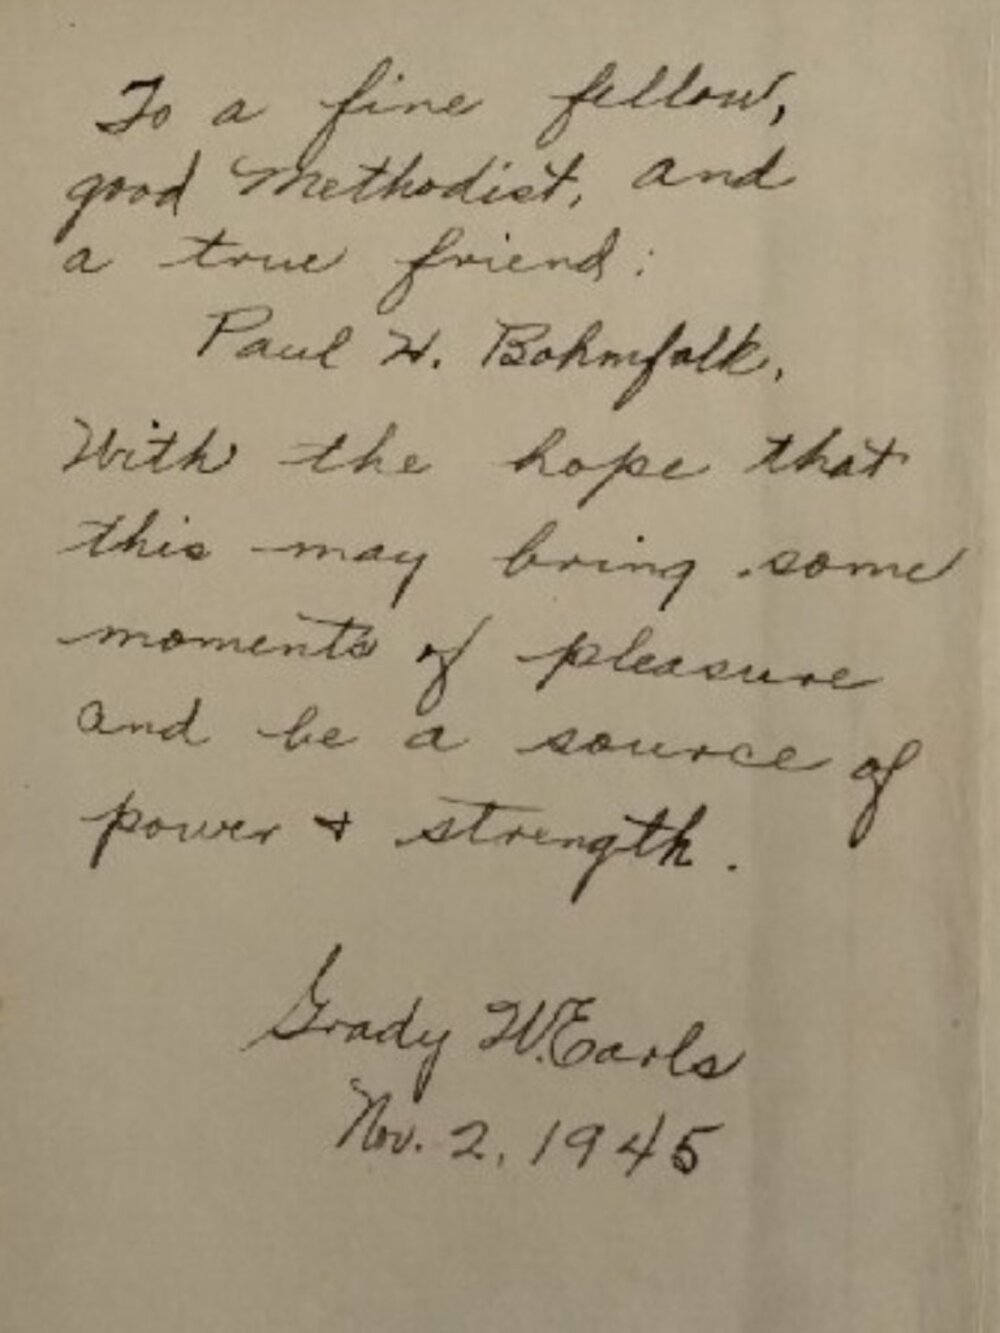 To a fine fellow,
good Methodist, and
a true friend:
Paul W. Bohmfalk,
With the hope that
this may bring some
moments of pleasure
and be a source of
power & strength.
Grady W. Earls
Nov. 2, 1945